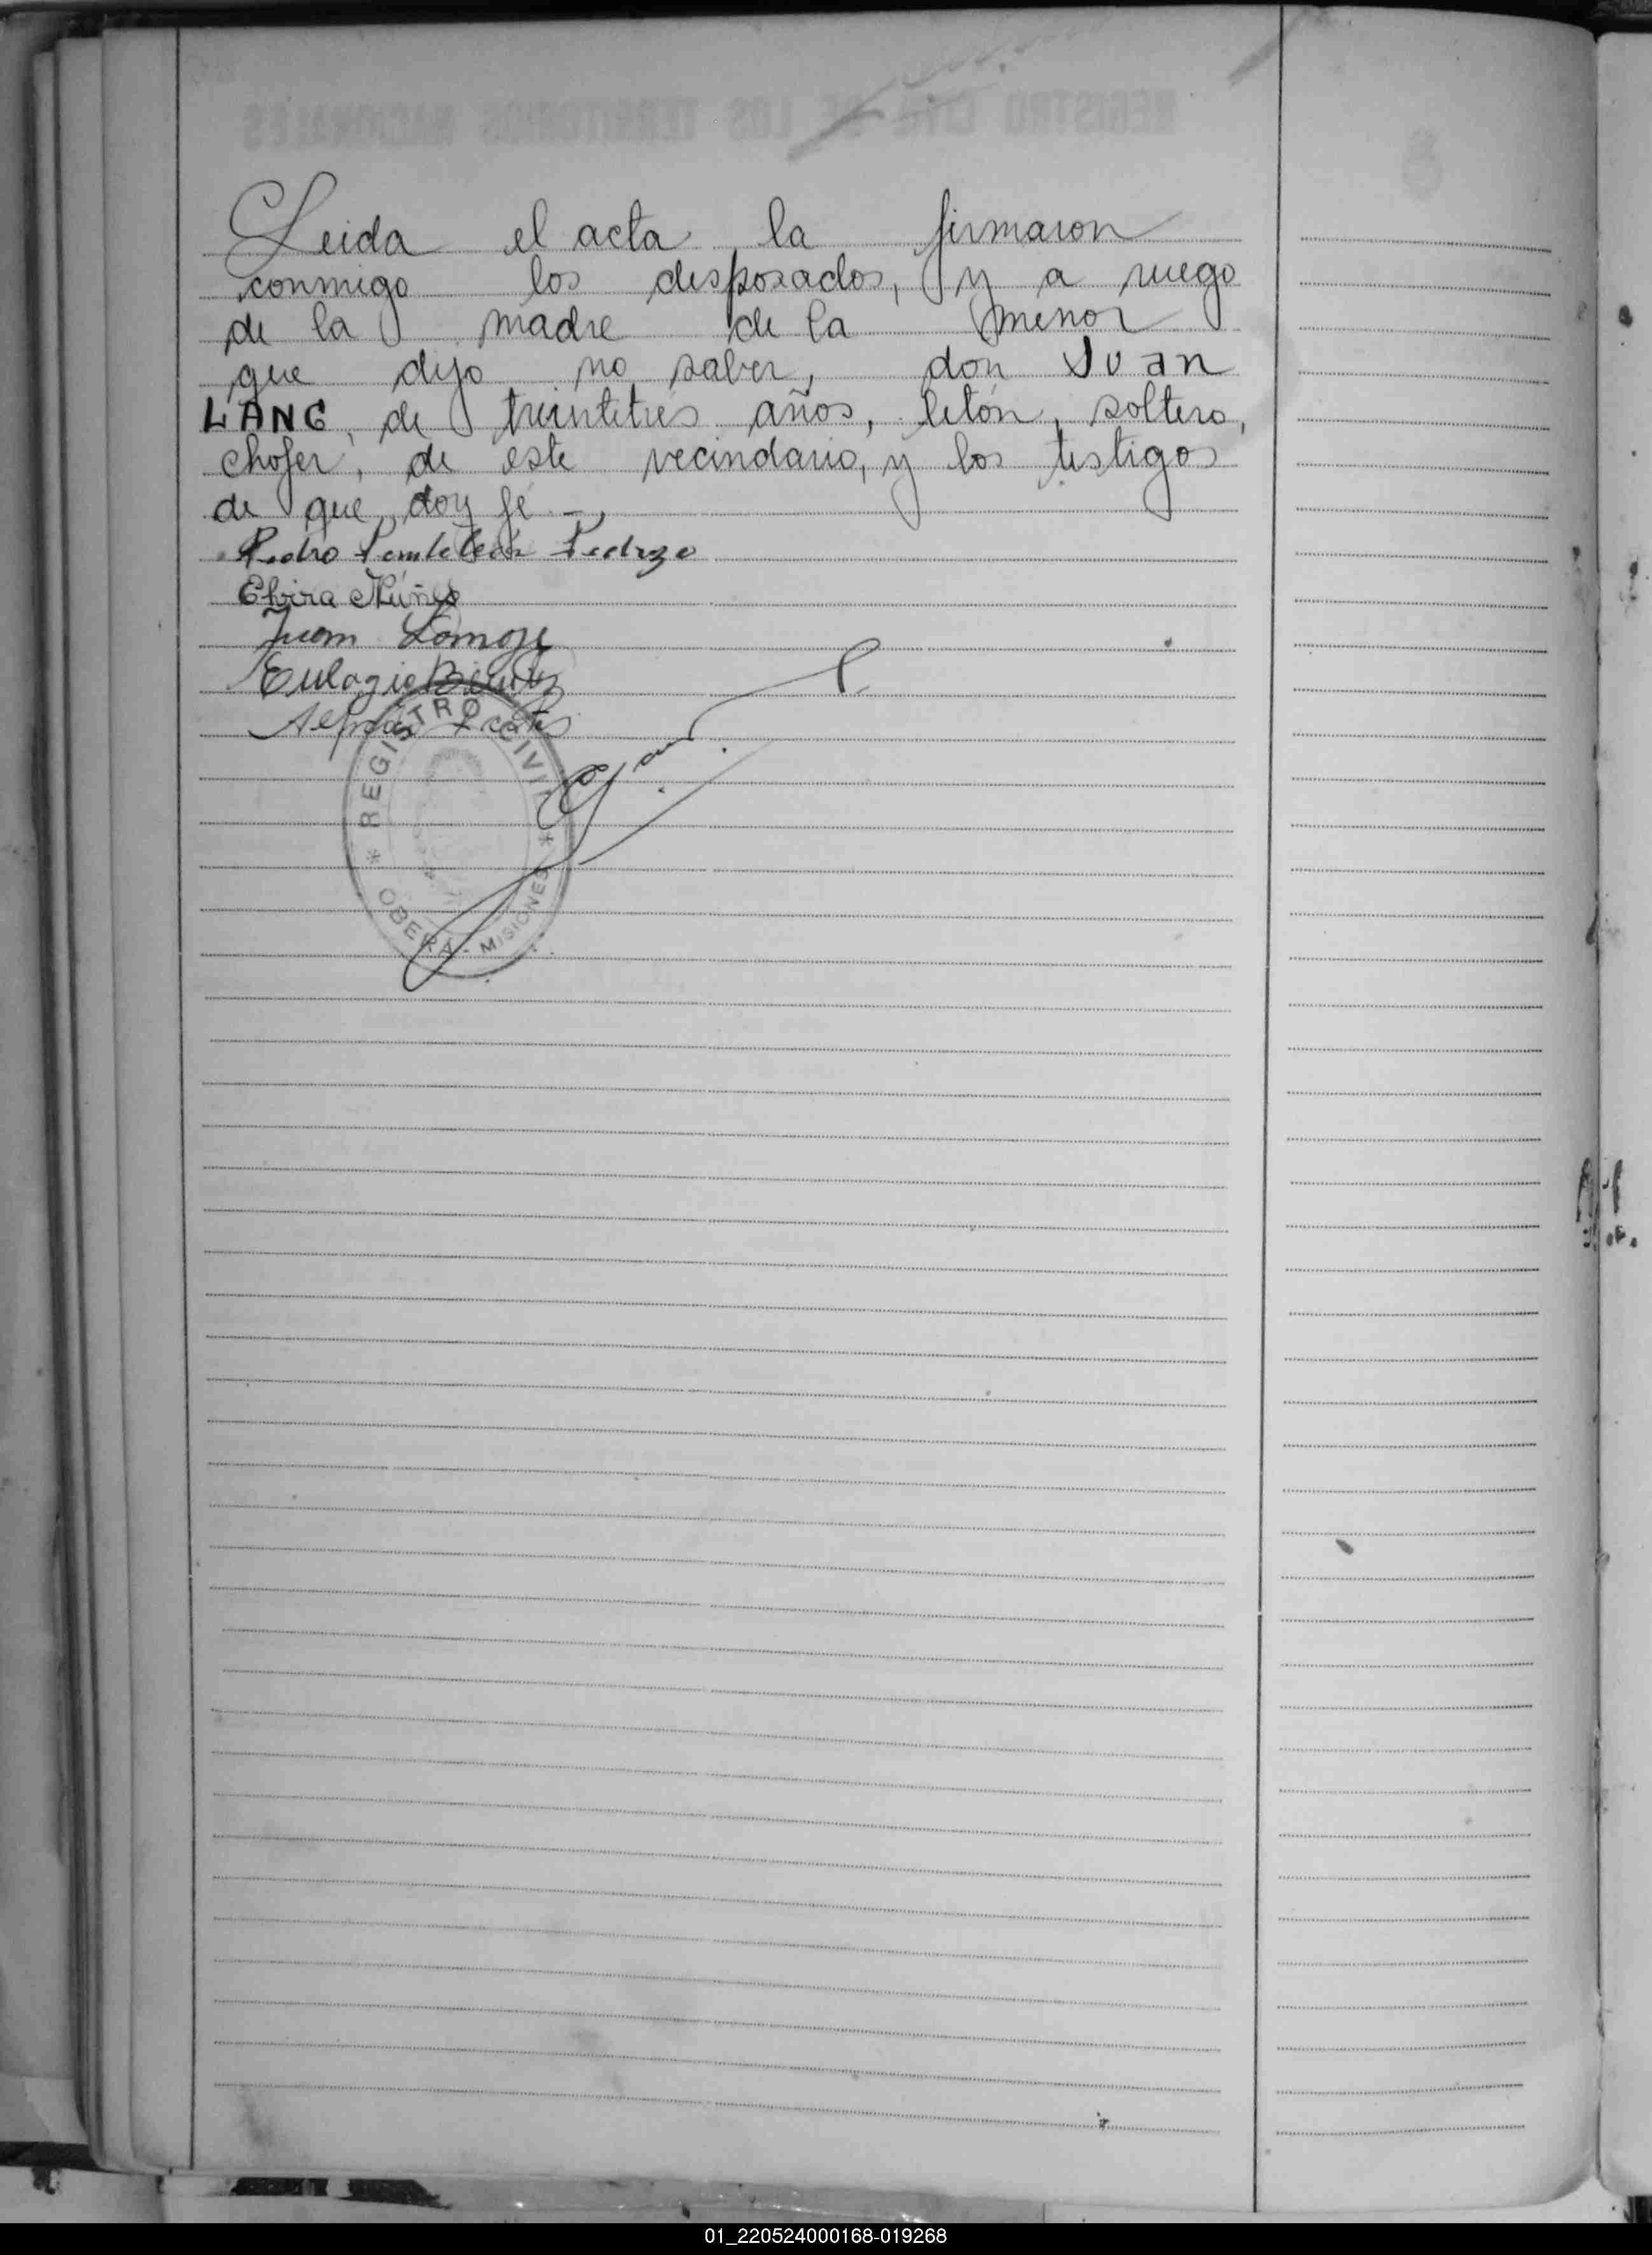 Leida el acta la firmaron
conmigo los desposados, y a ruego
de la madre de la menor
que dijo no saber, don Juan
LANG, de treintitrés años, letón, soltero,
chofer, de este vecindario, y los testigos
de que doy fé.-
Pedro Pantaleón Pedrozo
Elvira Núñez
Juan
Eulogio Benitez
REGISTRO CIVIL
* OBERÁ - MISIONES *
01_220524000168-019268